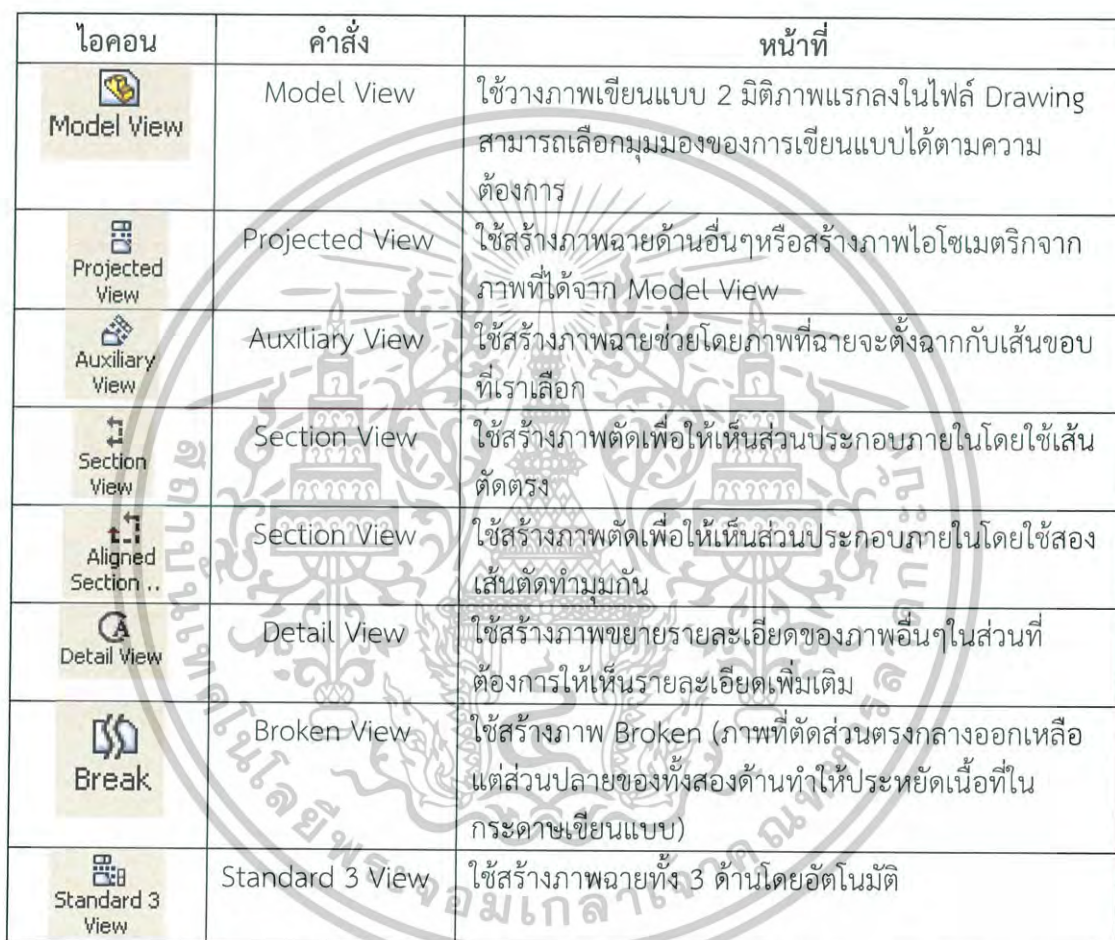 ไอคอน คำสั่ง หน้าที่
Model View
Model View
ใช้วางภาพเขียนแบบ 2 มิติภาพแรกลงในไฟล์ Drawing
สามารถเลือกมุมมองของการเขียนแบบได้ตามความ
ต้องการ
Projected
View
Projected View
ใช้สร้างภาพฉายด้านอื่นๆหรือสร้างภาพไอโซเมตริกจาก
ภาพที่ได้จาก Model View
Auxiliary
View
Auxiliary View
ใช้สร้างภาพฉายช่วยโดยภาพที่ฉายจะตั้งฉากกับเส้นขอบ
ที่เราเลือก
Section
View
Section View
ใช้สร้างภาพตัดเพื่อให้เห็นส่วนประกอบภายในโดยใช้เส้น
ตัดตรง
Aligned
Section ..
Section View
ใช้สร้างภาพตัดเพื่อให้เห็นส่วนประกอบภายในโดยใช้สอง
เส้นตัดทำมุมกัน
A
Detail View
Detail View
ใช้สร้างภาพขยายรายละเอียดของภาพอื่นๆในส่วนที่
ต้องการให้เห็นรายละเอียดเพิ่มเติม
Break
Broken View
ใช้สร้างภาพ Broken (ภาพที่ตัดส่วนตรงกลางออกเหลือ
แต่ส่วนปลายของทั้งสองด้านทำให้ประหยัดเนื้อที่ใน
กระดาษเขียนแบบ)
Standard 3
View
Standard 3 View
ใช้สร้างภาพฉายทั้ง 3 ด้านโดยอัตโนมัติ
สถาบันเทคโนโลยีพระจอมเกล้าเจ้าคุณทหารลาดกระบัง